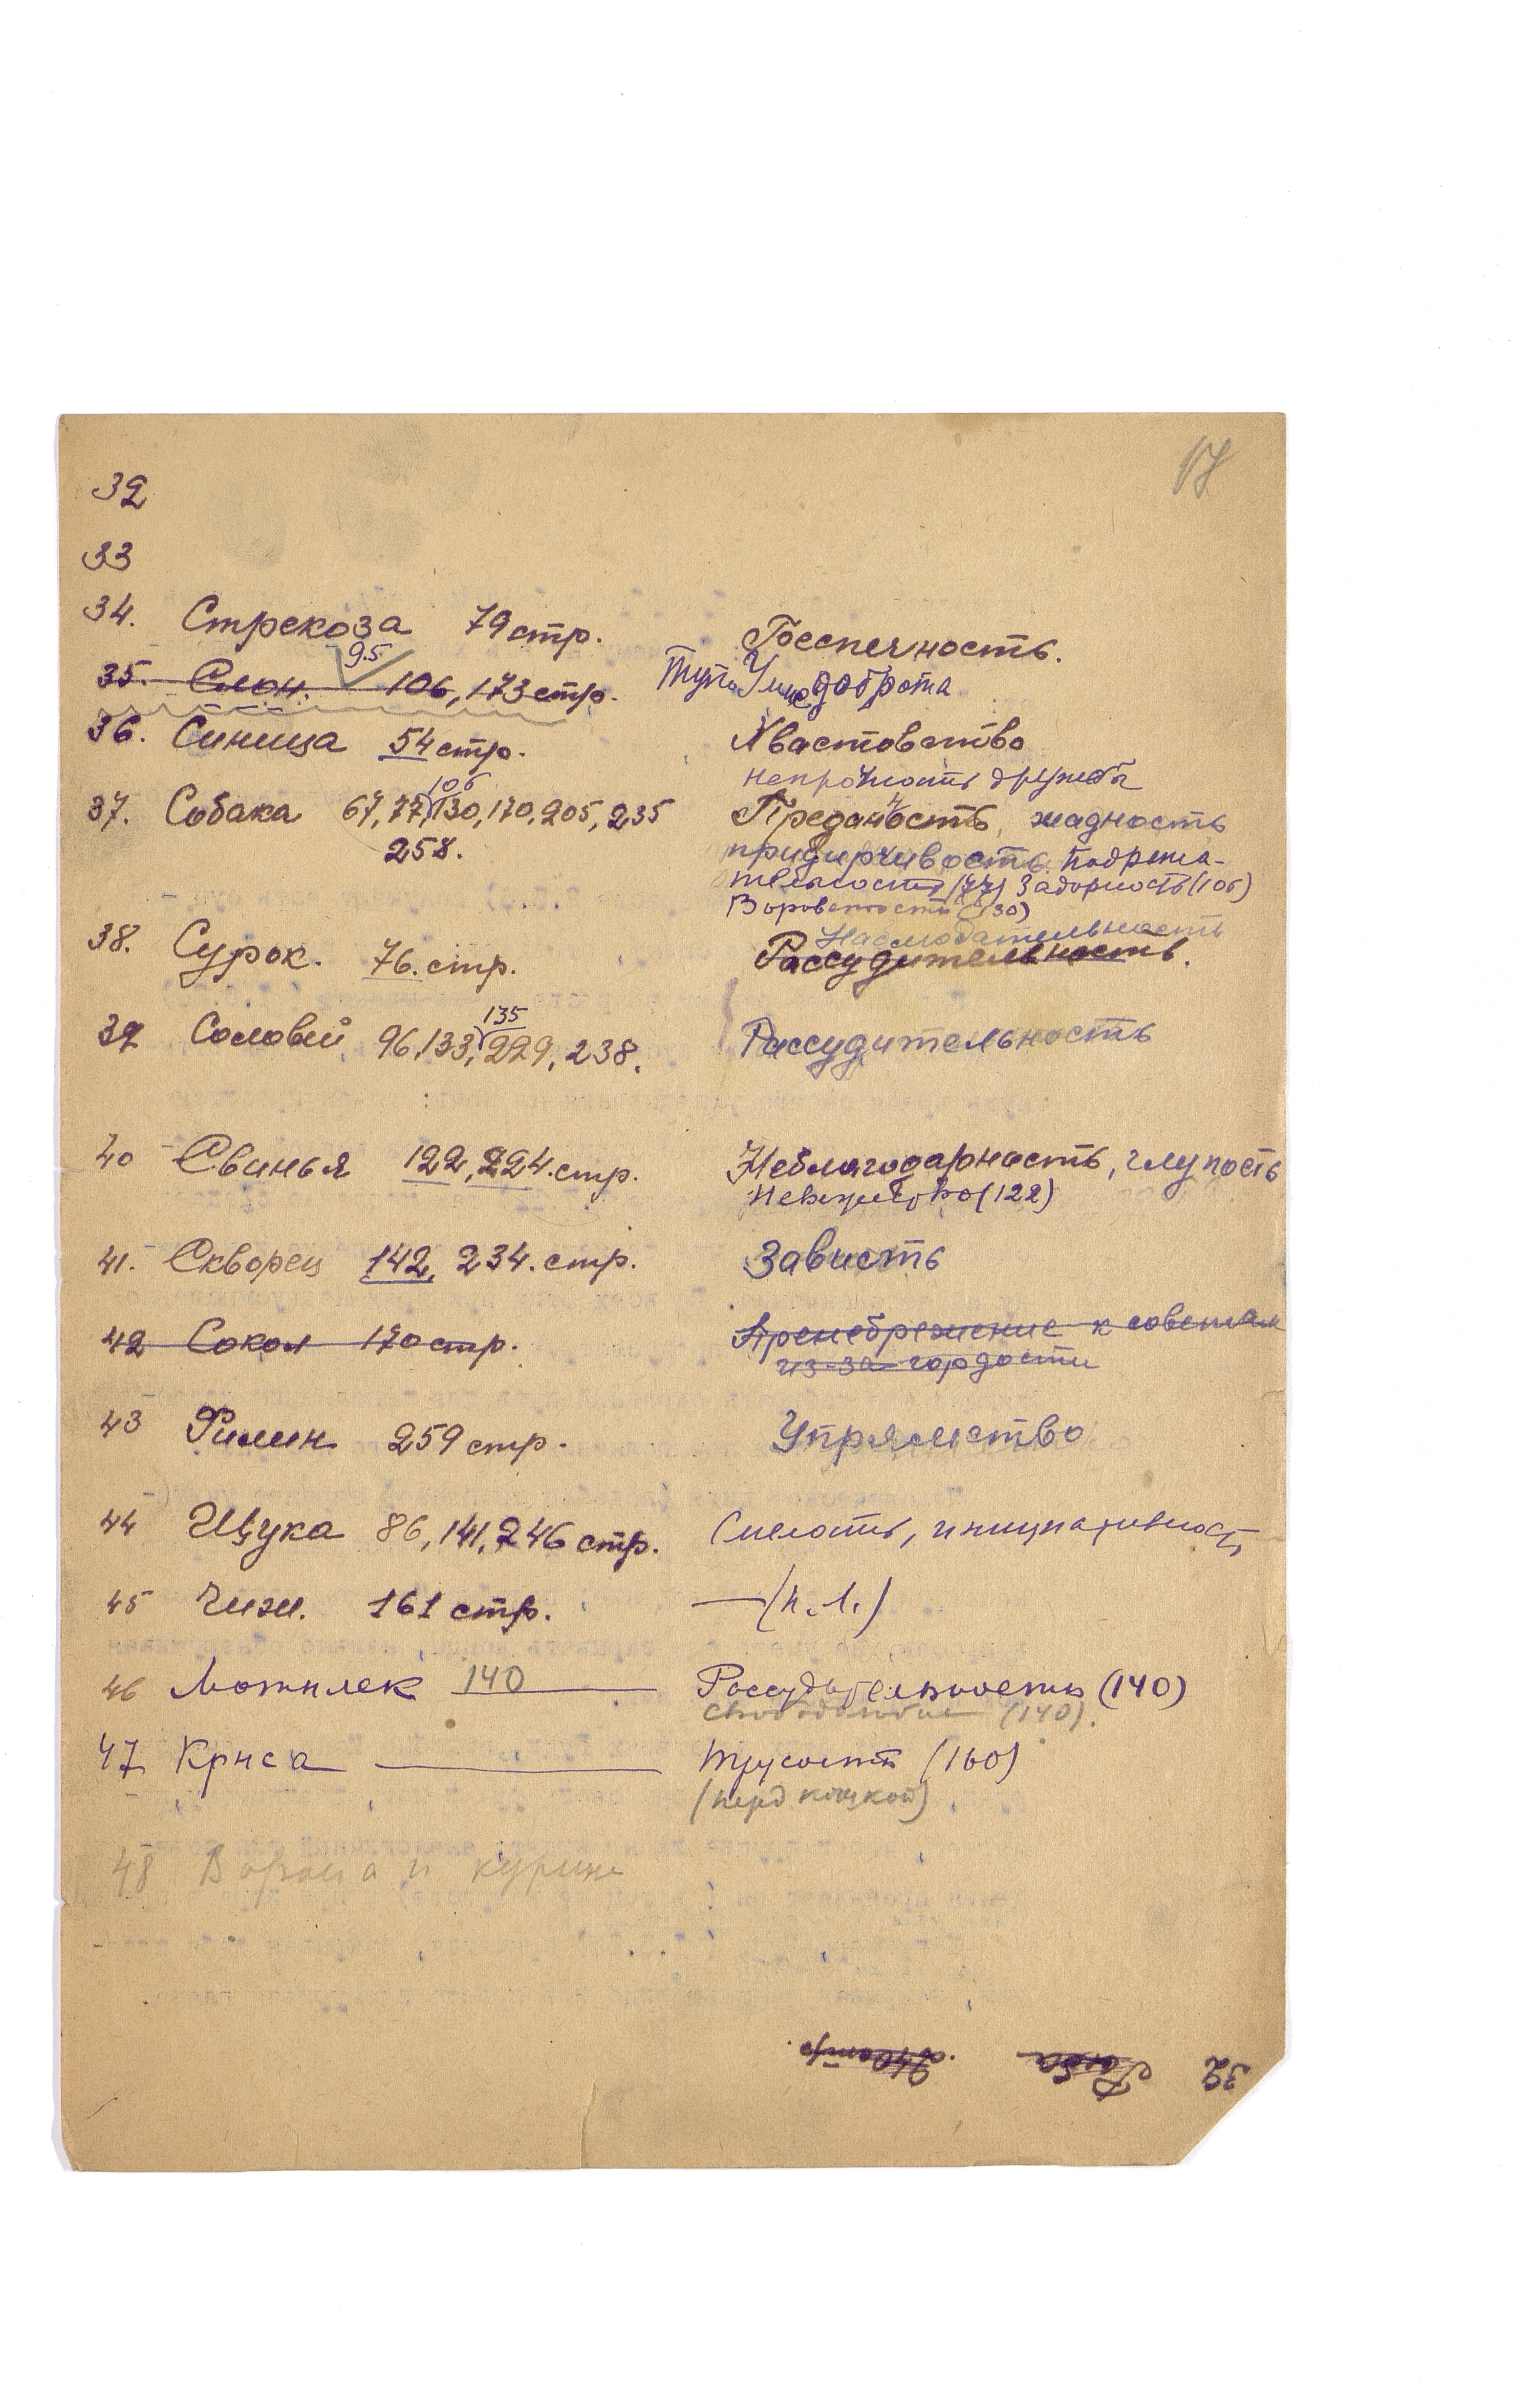 17
32
33
34. Стрекоза 79 стр. Беспечность.
95
35. Слон. 106, 173 стр. доброта
36. Синица 54 стр. Хвастовство
непрочность дружбы
106
37. Собака 67, 77, 130, 170, 205, 235 Преданность, жадность
258. придирчивость. Подража-
тельность (77) Задорность (106)
Вороватость (130)
Наблюдательность
38. Сурок. 76. стр. Рассудительность.
135
39 Соловей 96, 133, 229, 238. Рассудительность
40 Свинья 122, 224. стр. Неблагодарность, глупость
Невежество (122)
41. Скворец 142, 234. стр. Зависть
42 Сокол 170 стр. Пренебрежение к советам
из-за гордости
43 Филин 259 стр. Упрямство
44 Щука 86, 141, 246 стр. Смелость, инициативность
45 Чиж. 161 стр. —(н. л.)
46 Мотылек 140 Рассудительность (140)
свободолюбие (140).
47 Крыса Трусость (160)
(перед кошкой)
48 Ворона и курица
32 Рыба 240 стр.